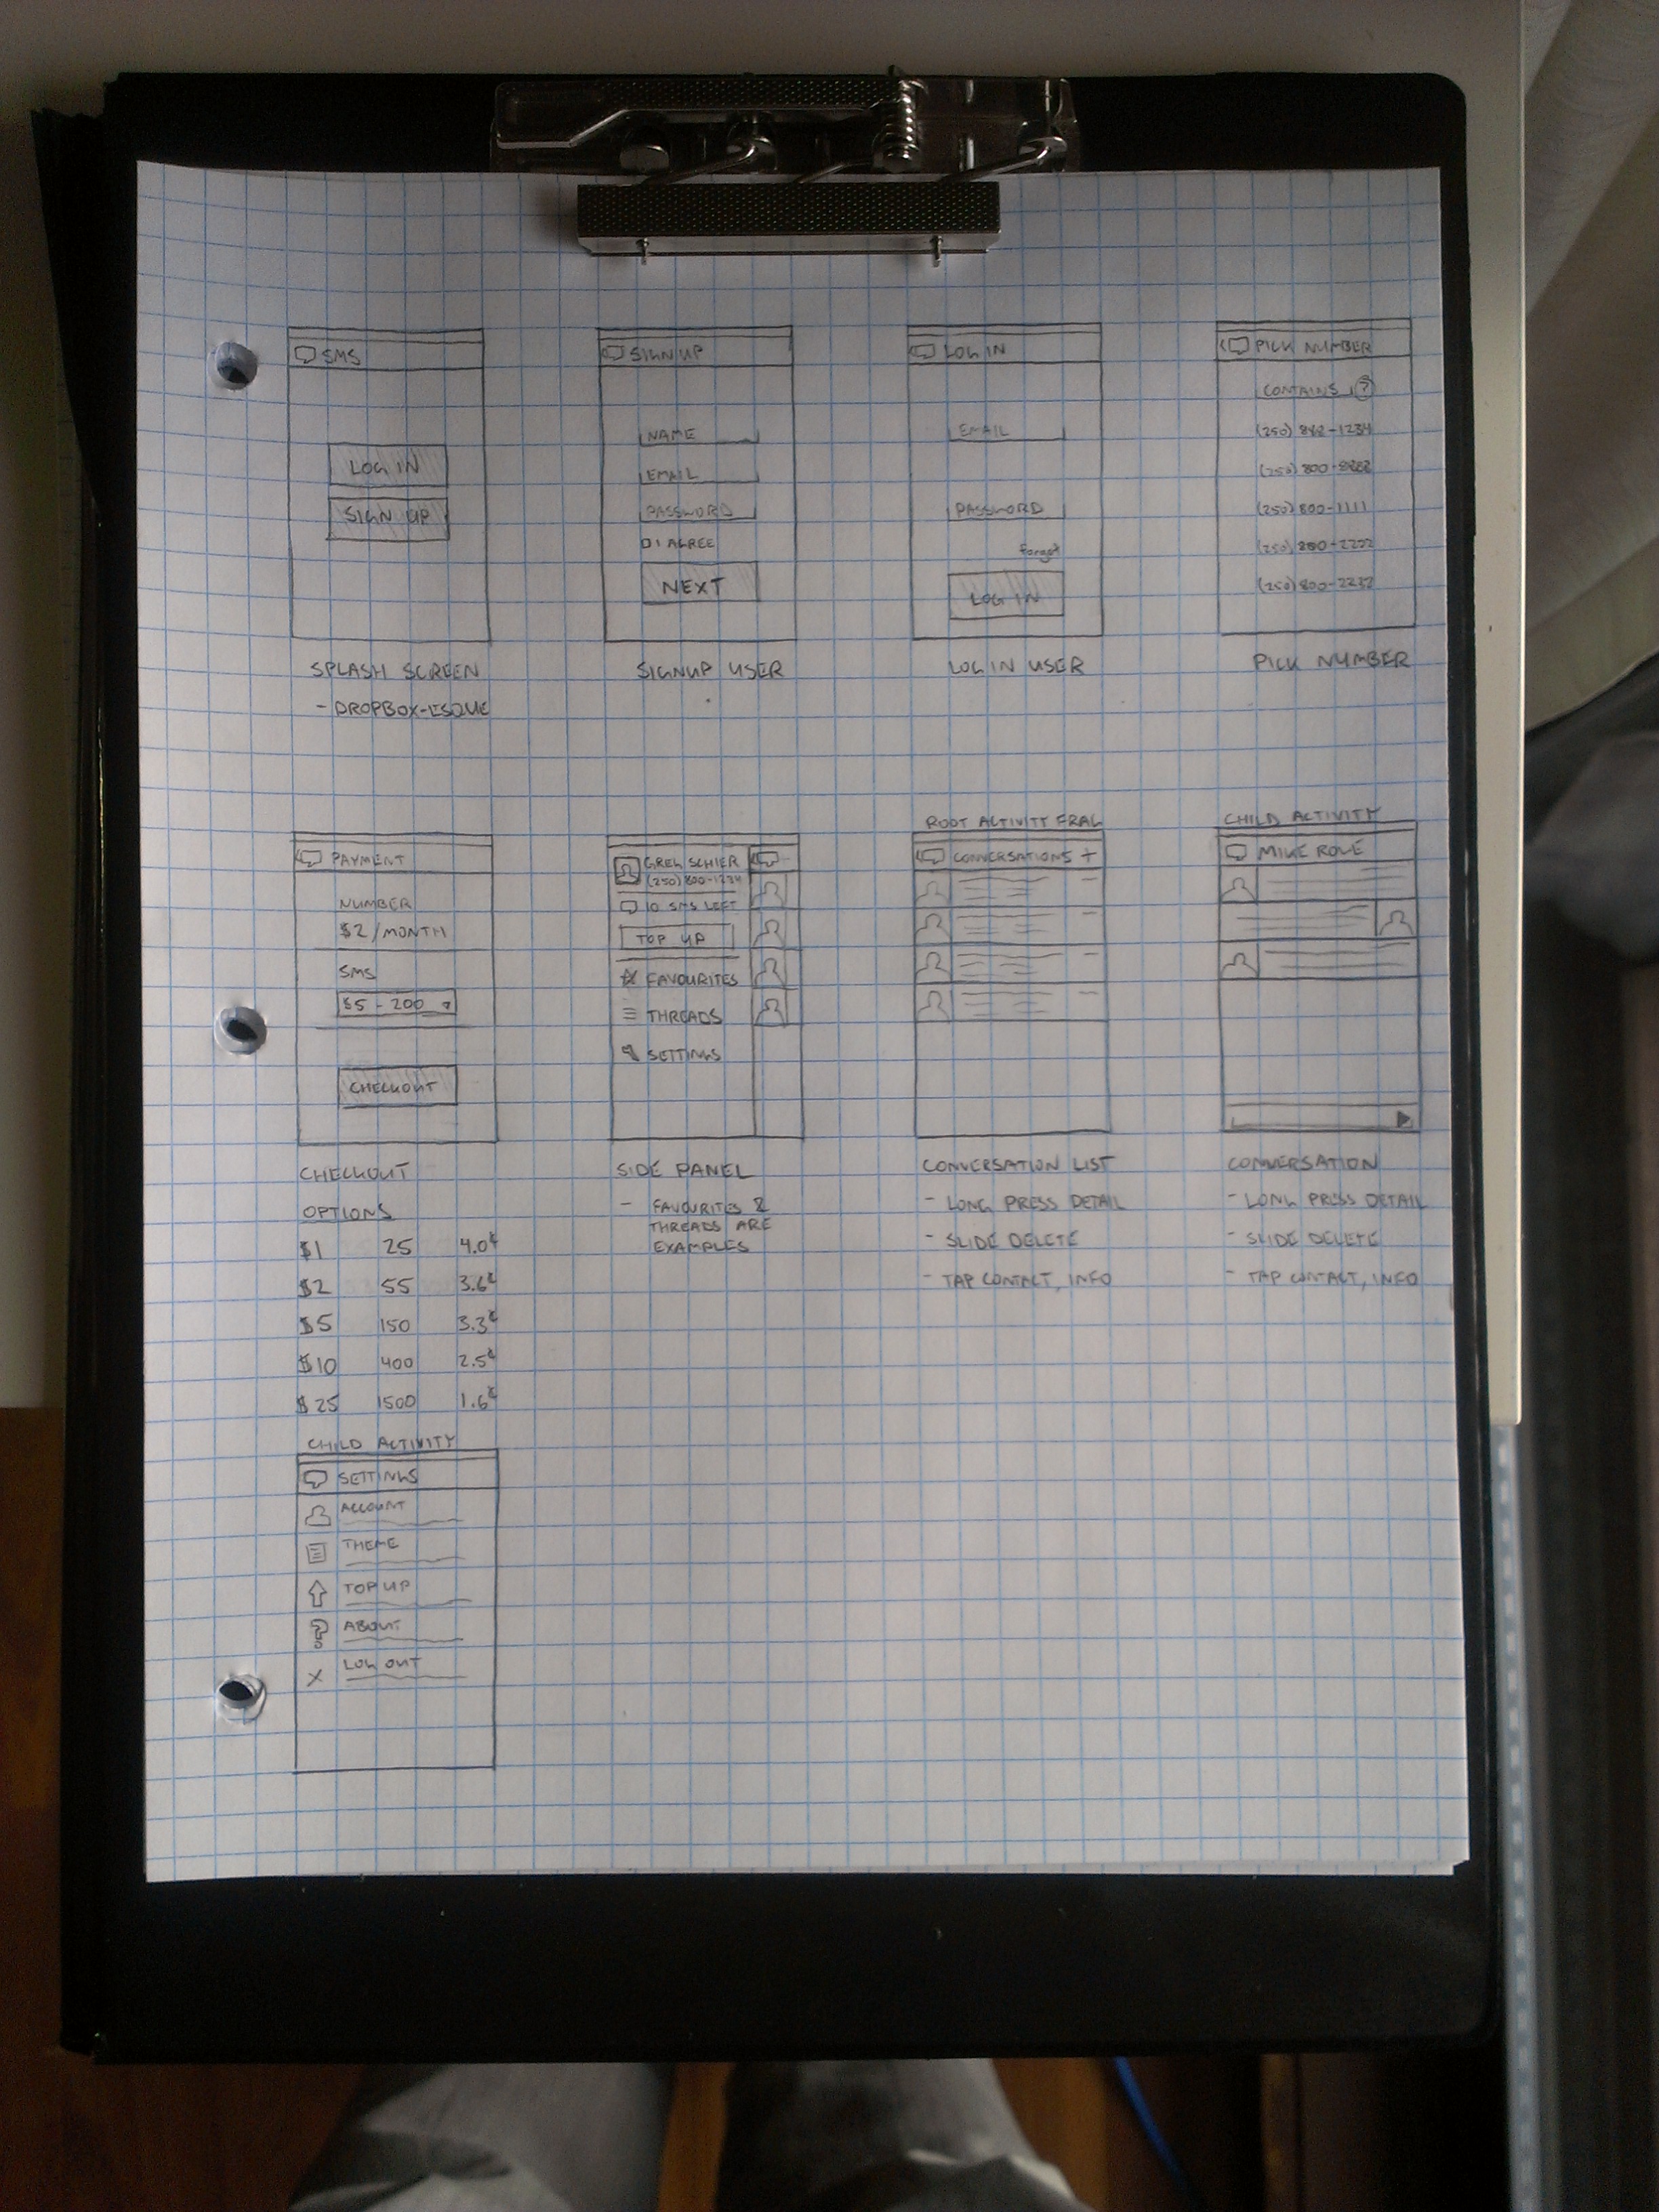 SMS
LOG IN
SIGN UP
SPLASH SCREEN
- DROPBOX-ESQUE
SIGN UP
NAME
EMAIL
PASSWORD
I AGREE
NEXT
SIGNUP USER
LOG IN
EMAIL
PASSWORD
Forgot
LOG IN
LOG IN USER
PICK NUMBER
CONTAINS ?
(250) 842-1234
(250) 800-8282
(250) 800-1111
(250) 800-2222
(250) 800-2232
PICK NUMBER
PAYMENT
NUMBER
$2/MONTH
SMS
$5 - 200
CHECKOUT
CHECKOUT
OPTIONS
$1 25 4.0¢
$2 55 3.6¢
$5 150 3.3¢
$10 400 2.5¢
$25 1500 1.6¢
GREG SCHIER
(250) 800-1234
10 SMS LEFT
TOP UP
FAVOURITES
THREADS
SETTINGS
SIDE PANEL
- FAVOURITES &
THREADS ARE
EXAMPLES
ROOT ACTIVITY FRAG
CONVERSATIONS +
CONVERSATION LIST
- LONG PRESS DETAIL
- SLIDE DELETE
- TAP CONTACT, INFO
CHILD ACTIVITY
MIKE
CONVERSATION
- LONG PRESS DETAIL
- SLIDE DELETE
- TAP CONTACT, INFO
CHILD ACTIVITY
SETTINGS
ACCOUNT
THEME
TOP UP
? ABOUT
X LOG OUT